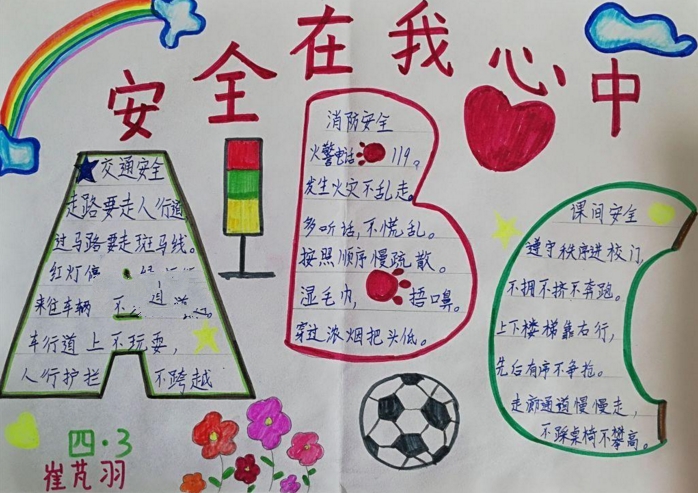 安全在我心中
交通安全
走路要走人行道
过马路要走斑马线。
红灯停
来往车辆 不
车行道上不玩耍，
人行护栏 不跨越
消防安全
火警电话 119。
发生火灾不乱走。
多听话，不慌乱。
按照顺序慢疏散。
湿毛巾， 捂口鼻。
穿过浓烟把头低。
课间安全
遵守秩序进校门，
不拥不挤不奔跑。
上下楼梯靠右行，
先后有序不争抢。
走廊通道慢慢走，
不踩桌椅不攀高。
四·3
崔芃羽